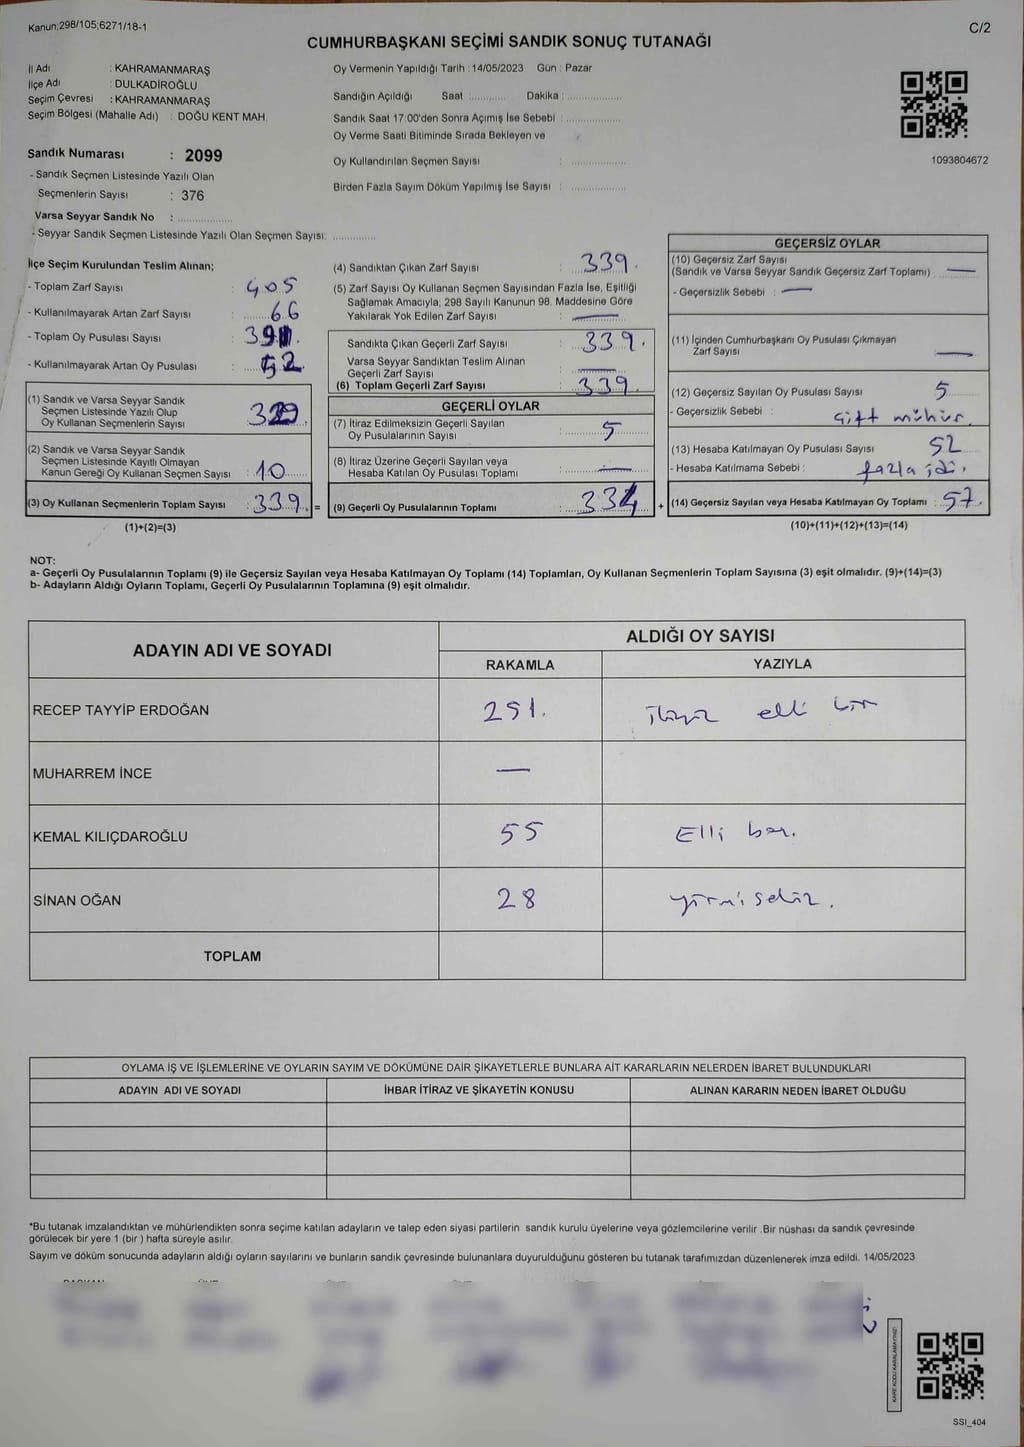 Kanun;298/105;6271/18-1
C/2
CUMHURBAŞKANI SEÇİMİ SANDIK SONUÇ TUTANAĞI
İl Adı : KAHRAMANMARAŞ
İlçe Adı : DULKADİROĞLU
Seçim Çevresi : KAHRAMANMARAŞ
Seçim Bölgesi (Mahalle Adı) : DOĞU KENT MAH.
Sandık Numarası : 2099
- Sandık Seçmen Listesinde Yazılı Olan
Seçmenlerin Sayısı : 376
Varsa Seyyar Sandık No : ................
- Seyyar Sandık Seçmen Listesinde Yazılı Olan Seçmen Sayısı: ............
Oy Vermenin Yapıldığı Tarih : 14/05/2023 Gün : Pazar
Sandığın Açıldığı Saat ............ Dakika : ................
Sandık Saat 17:00'den Sonra Açımış İse Sebebi : ................
Oy Verme Saati Bitiminde Sırada Bekleyen ve
Oy Kullandırılan Seçmen Sayısı : ................
Birden Fazla Sayım Döküm Yapılmış İse Sayısı : ................
1093804672
İlçe Seçim Kurulundan Teslim Alınan;
- Toplam Zarf Sayısı : 405
- Kullanılmayarak Artan Zarf Sayısı : 66
- Toplam Oy Pusulası Sayısı : 391.
- Kullanılmayarak Artan Oy Pusulası : 52
(1) Sandık ve Varsa Seyyar Sandık
Seçmen Listesinde Yazılı Olup
Oy Kullanan Seçmenlerin Sayısı : 329.
(2) Sandık ve Varsa Seyyar Sandık
Seçmen Listesinde Kayıtlı Olmayan
Kanun Gereği Oy Kullanan Seçmen Sayısı : 10
(3) Oy Kullanan Seçmenlerin Toplam Sayısı : 339. =
(1)+(2)=(3)
(4) Sandıktan Çıkan Zarf Sayısı : 339.
(5) Zarf Sayısı Oy Kullanan Seçmen Sayısından Fazla İse, Eşitliği
Sağlamak Amacıyla; 298 Sayılı Kanunun 98. Maddesine Göre
Yakılarak Yok Edilen Zarf Sayısı : —
Sandıkta Çıkan Geçerli Zarf Sayısı : 339.
Varsa Seyyar Sandıktan Teslim Alınan
Geçerli Zarf Sayısı : —
(6) Toplam Geçerli Zarf Sayısı : 339.
GEÇERLİ OYLAR
(7) İtiraz Edilmeksizin Geçerli Sayılan
Oy Pusulalarının Sayısı : 5
(8) İtiraz Üzerine Geçerli Sayılan veya
Hesaba Katılan Oy Pusulası Toplamı : —
(9) Geçerli Oy Pusulalarının Toplamı : 334 +
GEÇERSİZ OYLAR
(10) Geçersiz Zarf Sayısı
(Sandık ve Varsa Seyyar Sandık Geçersiz Zarf Toplamı) : —
- Geçersizlik Sebebi : —
(11) İçinden Cumhurbaşkanı Oy Pusulası Çıkmayan
Zarf Sayısı —
(12) Geçersiz Sayılan Oy Pusulası Sayısı : 5
- Geçersizlik Sebebi : Çift mühür.
(13) Hesaba Katılmayan Oy Pusulası Sayısı : 52
- Hesaba Katılmama Sebebi : fazla idi.
(14) Geçersiz Sayılan veya Hesaba Katılmayan Oy Toplamı : 57.
(10)+(11)+(12)+(13)=(14)
NOT:
a- Geçerli Oy Pusulalarının Toplamı (9) ile Geçersiz Sayılan veya Hesaba Katılmayan Oy Toplamı (14) Toplamları, Oy Kullanan Seçmenlerin Toplam Sayısına (3) eşit olmalıdır. (9)+(14)=(3)
b- Adayların Aldığı Oyların Toplamı, Geçerli Oy Pusulalarının Toplamına (9) eşit olmalıdır.
ADAYIN ADI VE SOYADI
ALDIĞI OY SAYISI
RAKAMLA YAZIYLA
RECEP TAYYİP ERDOĞAN 251. ikiyüz elli bir
MUHARREM İNCE —
KEMAL KILIÇDAROĞLU 55 Elli beş.
SİNAN OĞAN 28 yirmi sekiz.
TOPLAM
OYLAMA İŞ VE İŞLEMLERİNE VE OYLARIN SAYIM VE DÖKÜMÜNE DAİR ŞİKAYETLERLE BUNLARA AİT KARARLARIN NELERDEN İBARET BULUNDUKLARI
ADAYIN ADI VE SOYADI İHBAR İTİRAZ VE ŞİKAYETİN KONUSU ALINAN KARARIN NEDEN İBARET OLDUĞU
*Bu tutanak imzalandıktan ve mühürlendikten sonra seçime katılan adayların ve talep eden siyasi partilerin sandık kurulu üyelerine veya gözlemcilerine verilir .Bir nüshası da sandık çevresinde
görülecek bir yere 1 (bir ) hafta süreyle asılır.
Sayım ve döküm sonucunda adayların aldığı oyların sayılarını ve bunların sandık çevresinde bulunanlara duyurulduğunu gösteren bu tutanak tarafımızdan düzenlenerek imza edildi. 14/05/2023
KARE KODU KARALAMAYINIZ!
SSI_404